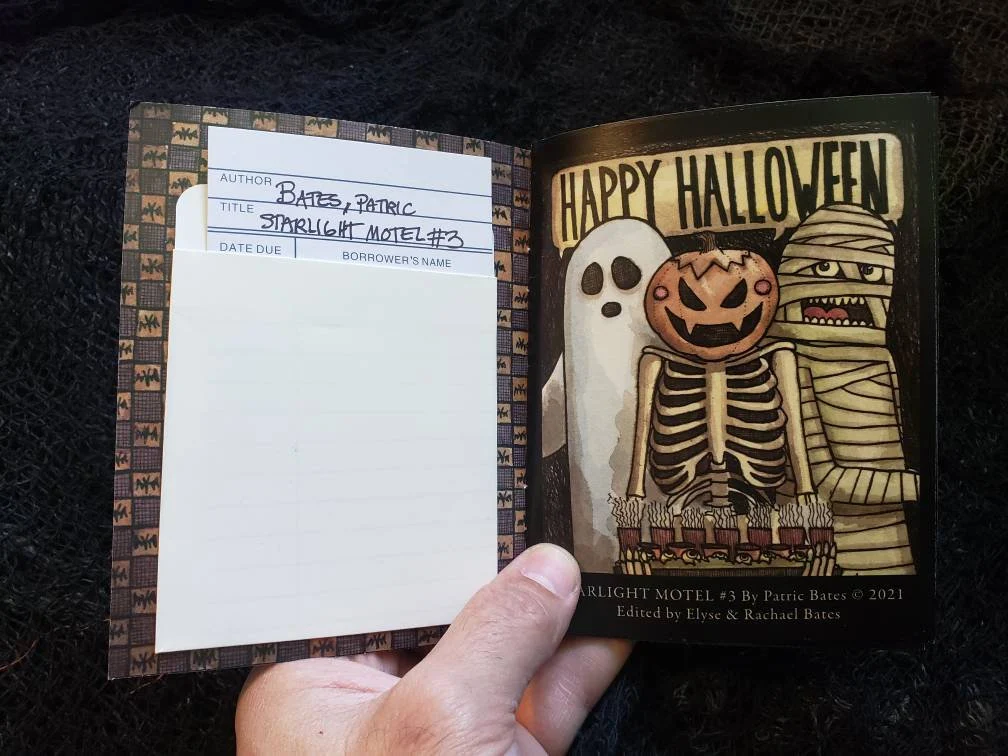 AUTHOR BATES, PATRIC
TITLE STARLIGHT MOTEL #3
DATE DUE BORROWER'S NAME
HAPPY HALLOWEEN
ARLIGHT MOTEL #3 By Patric Bates © 2021
Edited by Elyse & Rachael Bates